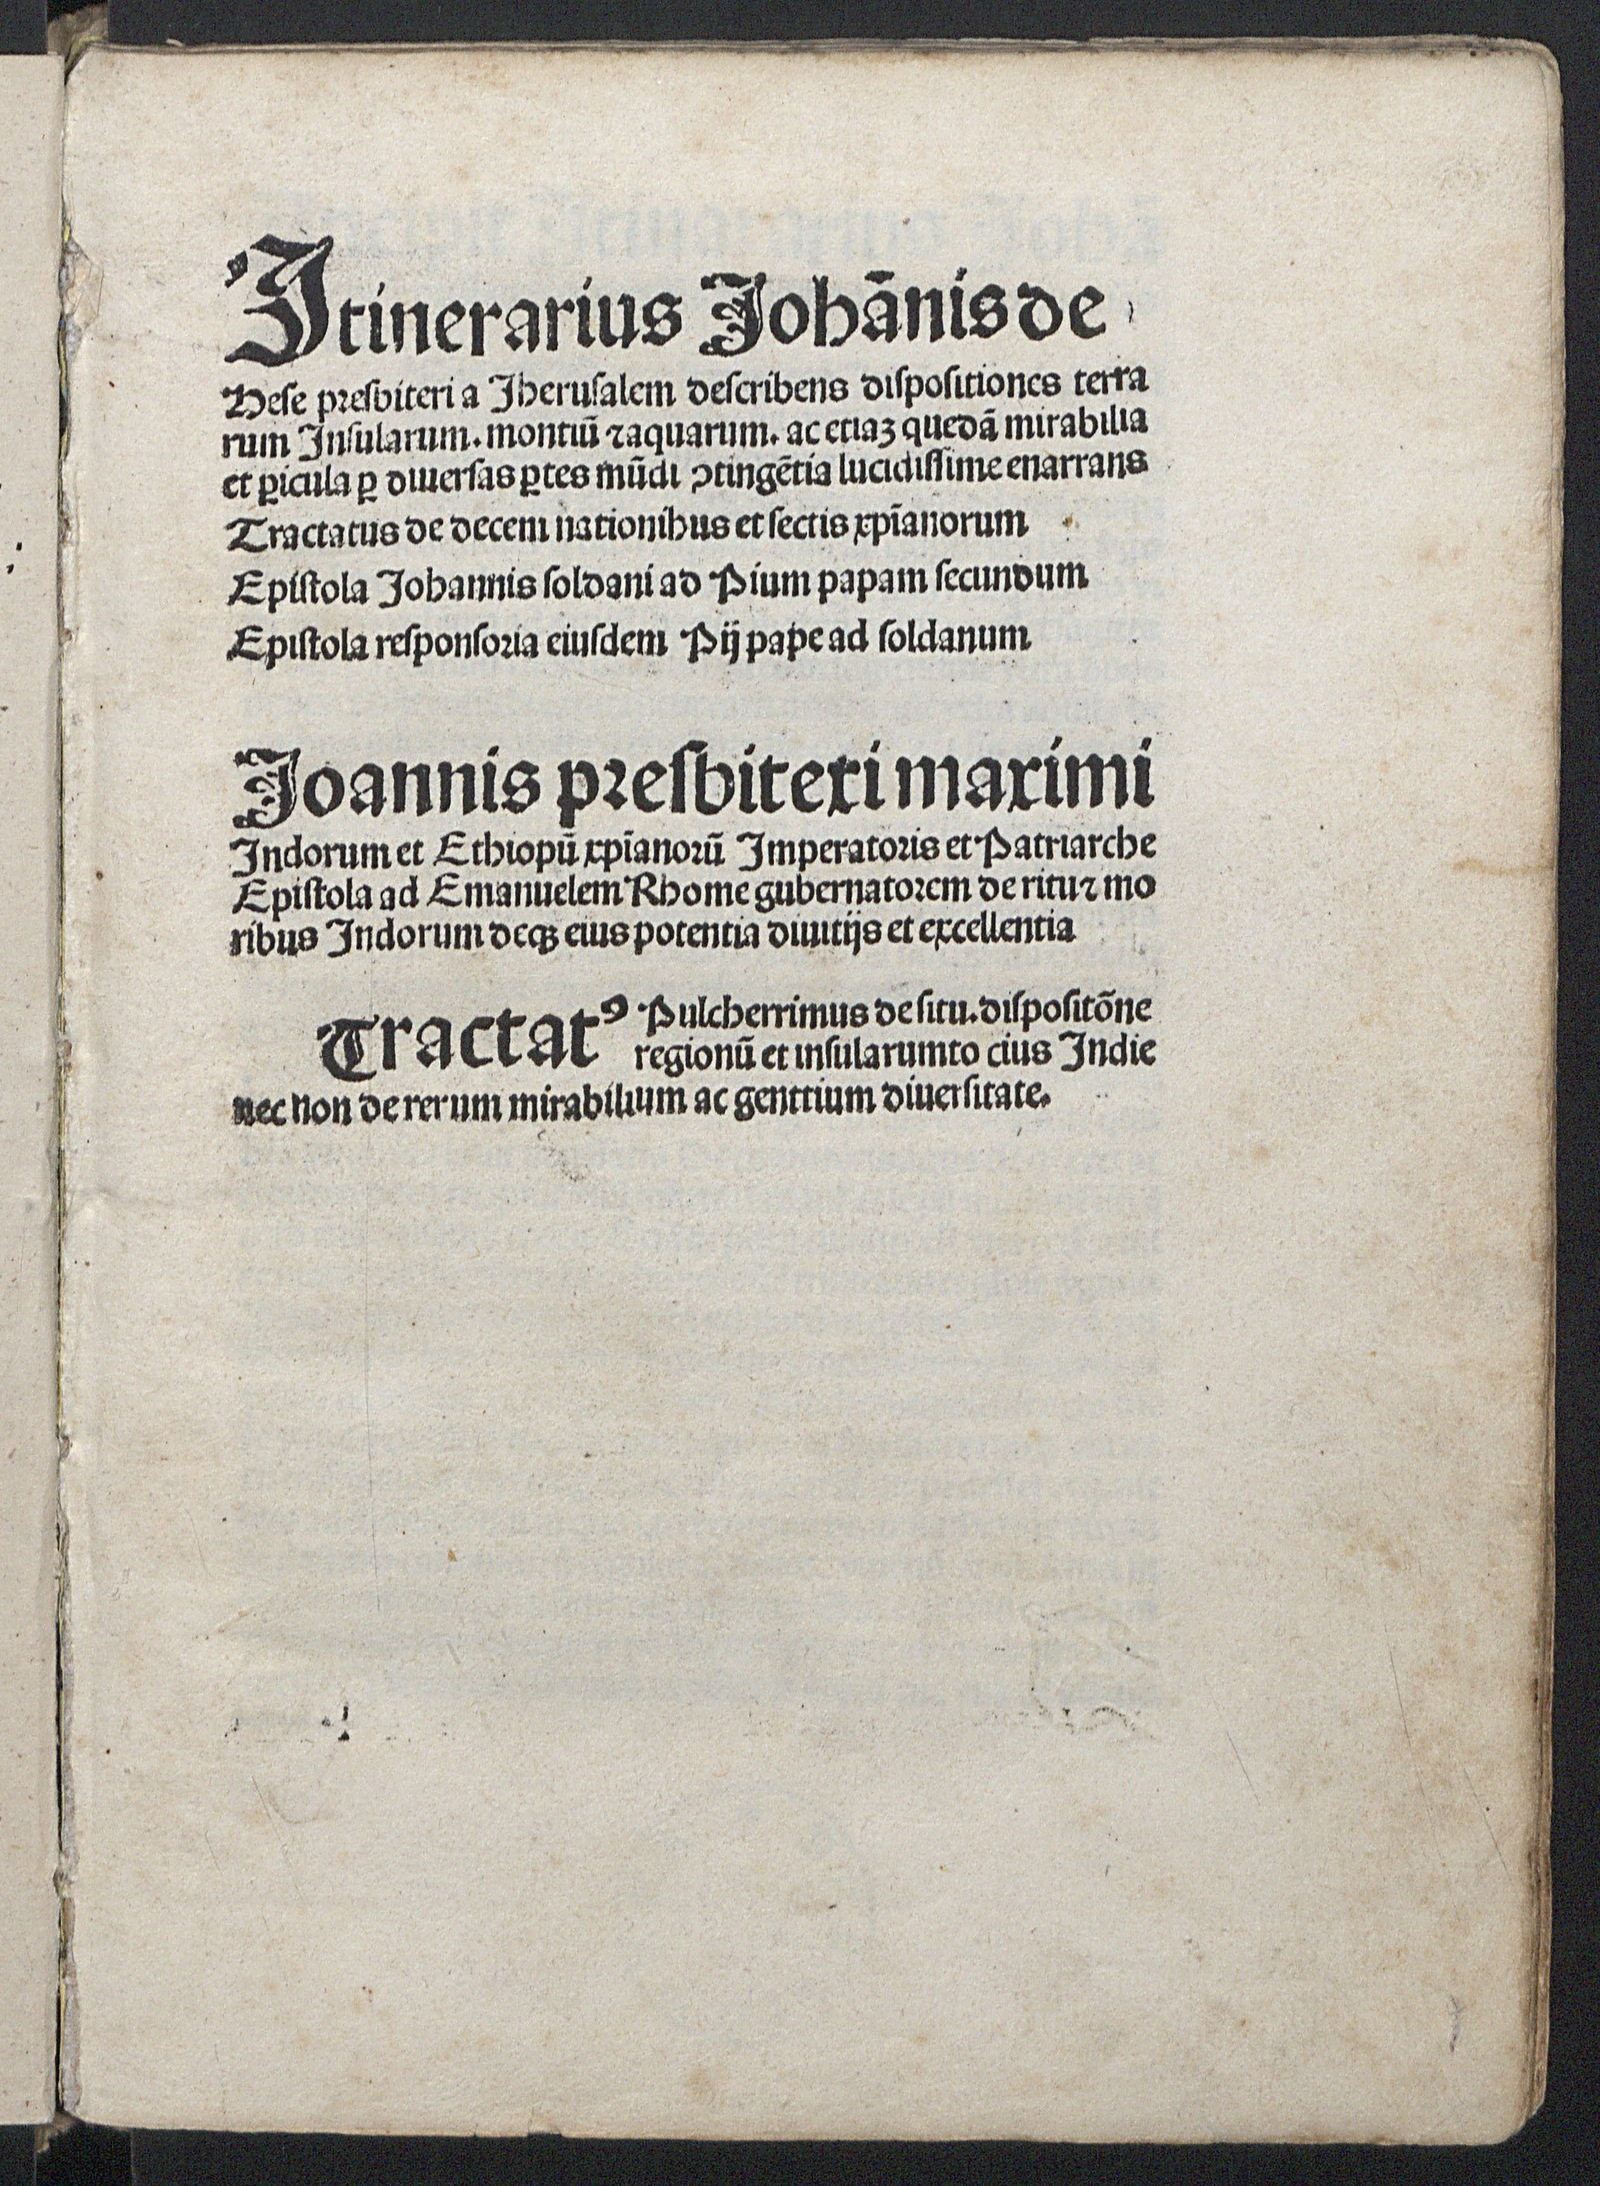 Itinerarius Johānis de
Hese presbiteri a Jherusalem describens dispositiones terra
rum Insularum. montiū ⁊ aquarum. ac etiaꝫ quedā mirabilia
et ꝑicula ꝑ diuersas ꝑtes mūdi ꝯtingētia lucidissime enarrans
Tractatus de decem nationibus et sectis xp̄ianorum
Epistola Johannis soldani ad Pium papam secundum
Epistola responsoria eiusdem Pij pape ad soldanum
Joannis presbiteri maximi
Indorum et Ethiopū xp̄ianorū Imperatoris et Patriarche
Epistola ad Emanuelem Rhome gubernatorem de ritu ⁊ mo
ribus Indorum deqꝫ eius potentia diuitijs et excellentia
Tractatꝰ Pulcherrimus de situ. dispositōne
regionū et insularumto cius Indie
nec non de rerum mirabilium ac genttium diuersitate.